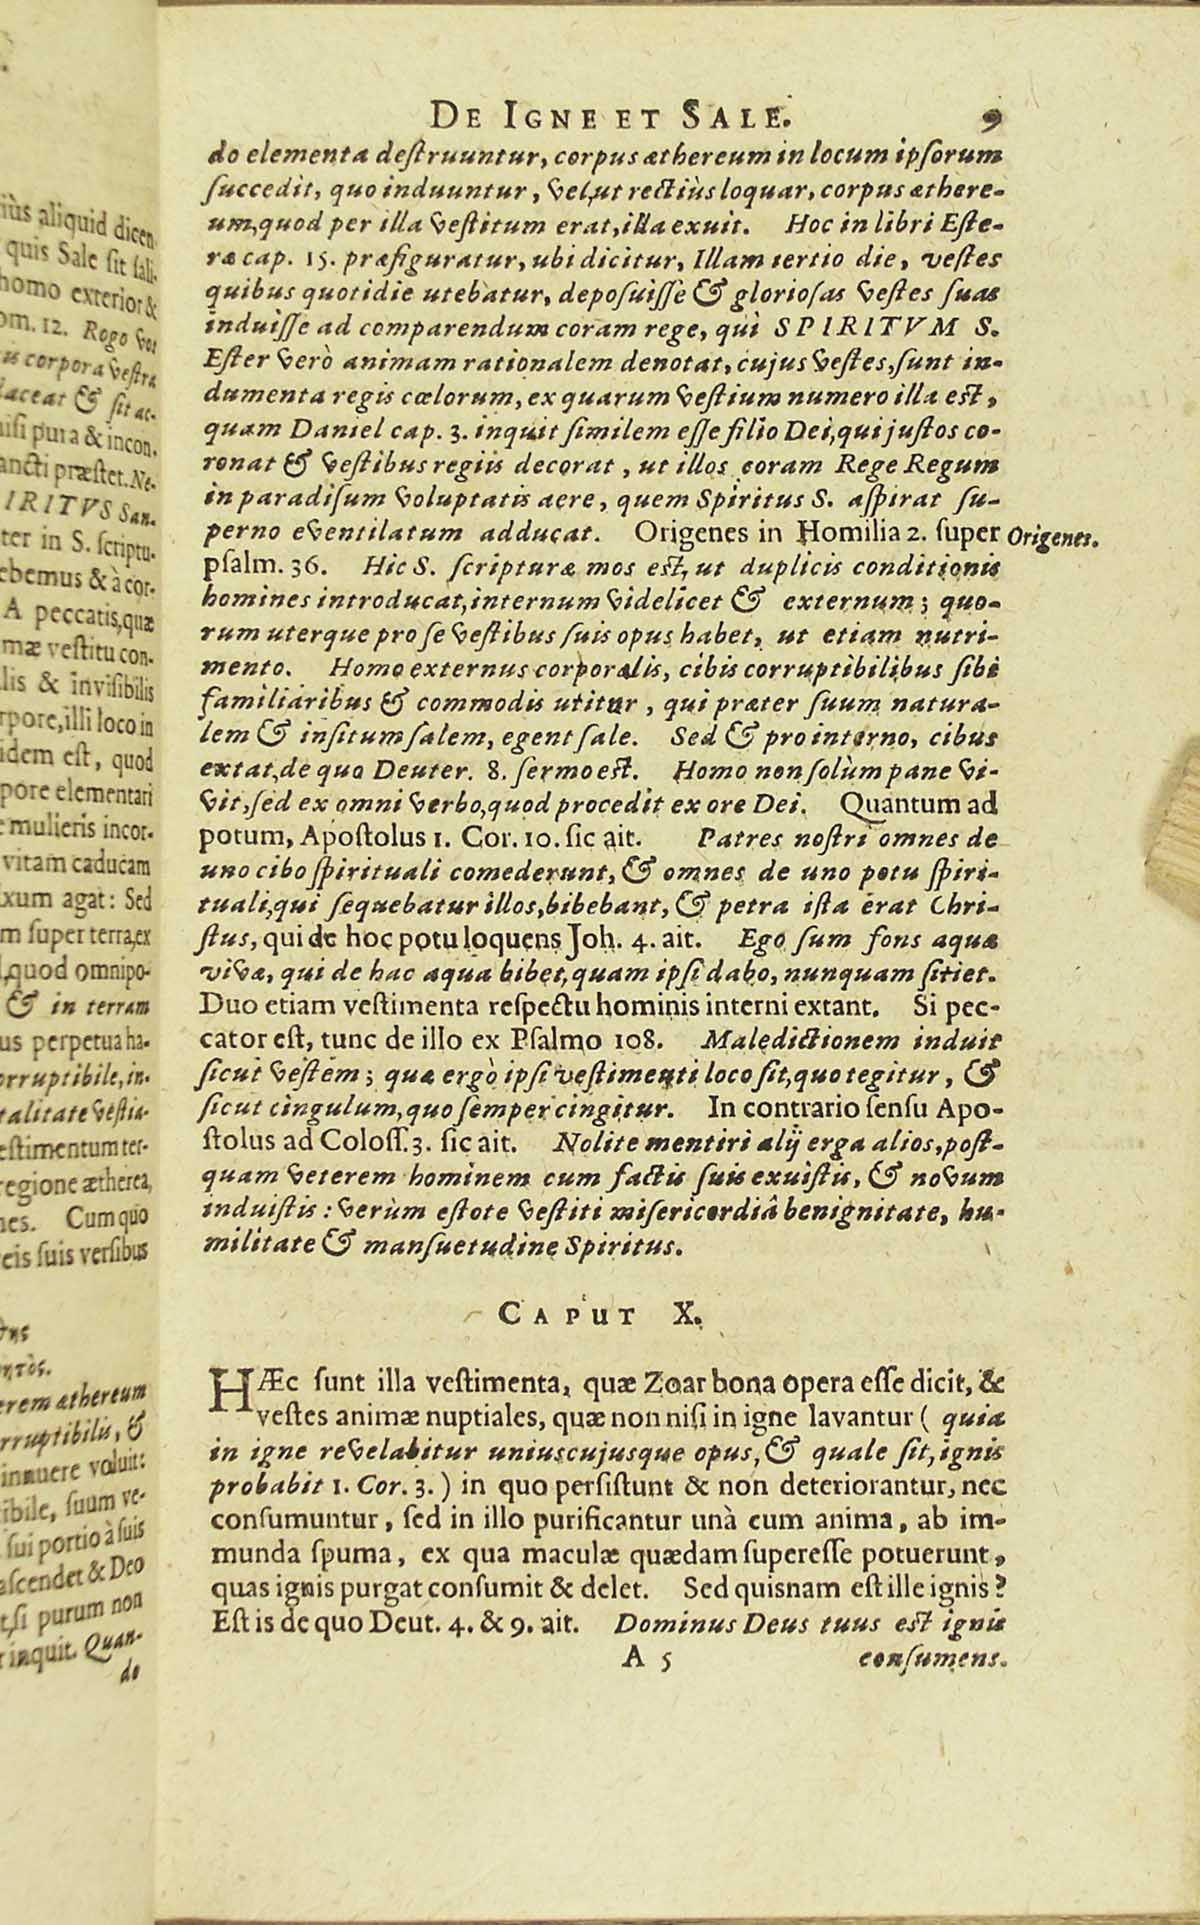 iùs aliquid dicen-
quis Sale sit sali-
homo exterior &
om. 12. Rogo vos
is corpora vestra
laceat & sit at-
nisi pura & incon-
ancti præstet. Ne-
IRITVS San-
ter in S. scriptu-
ebemus & à cor-
A peccatis, quæ
mæ vestitu con-
lis & invisibilis
rpore, illi loco in
idem est, quod
pore elementari
e mulieris incor-
vitam caducam
xum agat: Sed
m super terra, ex
l, quod omnipo-
& in terram
us perpetua ha-
orruptibile, in-
talitate vestia-
estimentum ter-
regione ætherea,
nes. Cum quo
eis suis versibus
erem æthereum
rruptibilis, &
innuere voluit:
tibile, suum ve-
sui portio à suis
ascendet & Deo
t, si purum non
r inquit. Quan-
do
DE IGNE ET SALE. 9
do elementa destruuntur, corpus æthereum in locum ipsorum
succedit, quo induuntur, vel, ut rectiùs loquar, corpus æthere-
um, quod per illa vestitum erat, illa exuit. Hoc in libri Este-
ræ cap. 15. præfiguratur, ubi dicitur, Illam tertio die, vestes
quibus quotidie utebatur, deposuisse & gloriosas vestes suas
induisse ad comparendum coram rege, qui SPIRITVM S.
Ester verò animam rationalem denotat, cujus vestes, sunt in-
dumenta regis cœlorum, ex quarum vestium numero illa est,
quam Daniel cap. 3. inquit similem esse filio Dei, qui justos co-
ronat & vestibus regiis decorat, ut illos coram Rege Regum
in paradisum voluptatis aere, quem Spiritus S. aspirat su-
perno eventilatum adducat. Origenes in Homilia 2. super
Origenes.
psalm. 36. Hic S. scripturæ mos est, ut duplicis conditionis
homines introducat, internum videlicet & externum; quo-
rum uterque pro se vestibus suis opus habet, ut etiam nutri-
mento. Homo externus corporalis, cibis corruptibilibus sibi
familiaribus & commodis utitur, qui præter suum natura-
lem & insitum salem, egent sale. Sed & pro interno, cibus
extat, de quo Deuter. 8. sermo est. Homo non solùm pane vi-
vit, sed ex omni verbo, quod procedit ex ore Dei. Quantum ad
potum, Apostolus 1. Cor. 10. sic ait. Patres nostri omnes de
uno cibo spirituali comederunt, & omnes de uno potu spiri-
tuali, qui sequebatur illos, bibebant, & petra ista erat Chri-
stus, qui de hoc potu loquens Joh. 4. ait. Ego sum fons aquæ
vivæ, qui de hac aqua bibet, quam ipsi dabo, nunquam sitiet.
Duo etiam vestimenta respectu hominis interni extant. Si pec-
cator est, tunc de illo ex Psalmo 108. Maledictionem induit
sicut vestem; quæ ergò ipsi vestimenti loco sit, quo tegitur, &
sicut cingulum, quo semper cingitur. In contrario sensu Apo-
stolus ad Coloss. 3. sic ait. Nolite mentiri alij erga alios, post-
quam veterem hominem cum factis suis exuistis, & novum
induistis: verùm estote vestiti misericordiâ benignitate, hu-
militate & mansuetudine Spiritus.
CAPUT X.
HÆc sunt illa vestimenta, quæ Zoar bona opera esse dicit, &
vestes animæ nuptiales, quæ non nisi in igne lavantur (quia
in igne revelabitur uniuscujusque opus, & quale sit, ignis
probabit 1. Cor. 3.) in quo persistunt & non deteriorantur, nec
consumuntur, sed in illo purificantur unà cum anima, ab im-
munda spuma, ex qua maculæ quædam superesse potuerunt,
quas ignis purgat consumit & delet. Sed quisnam est ille ignis?
Est is de quo Deut. 4. & 9. ait. Dominus Deus tuus est ignis
A 5 consumens.